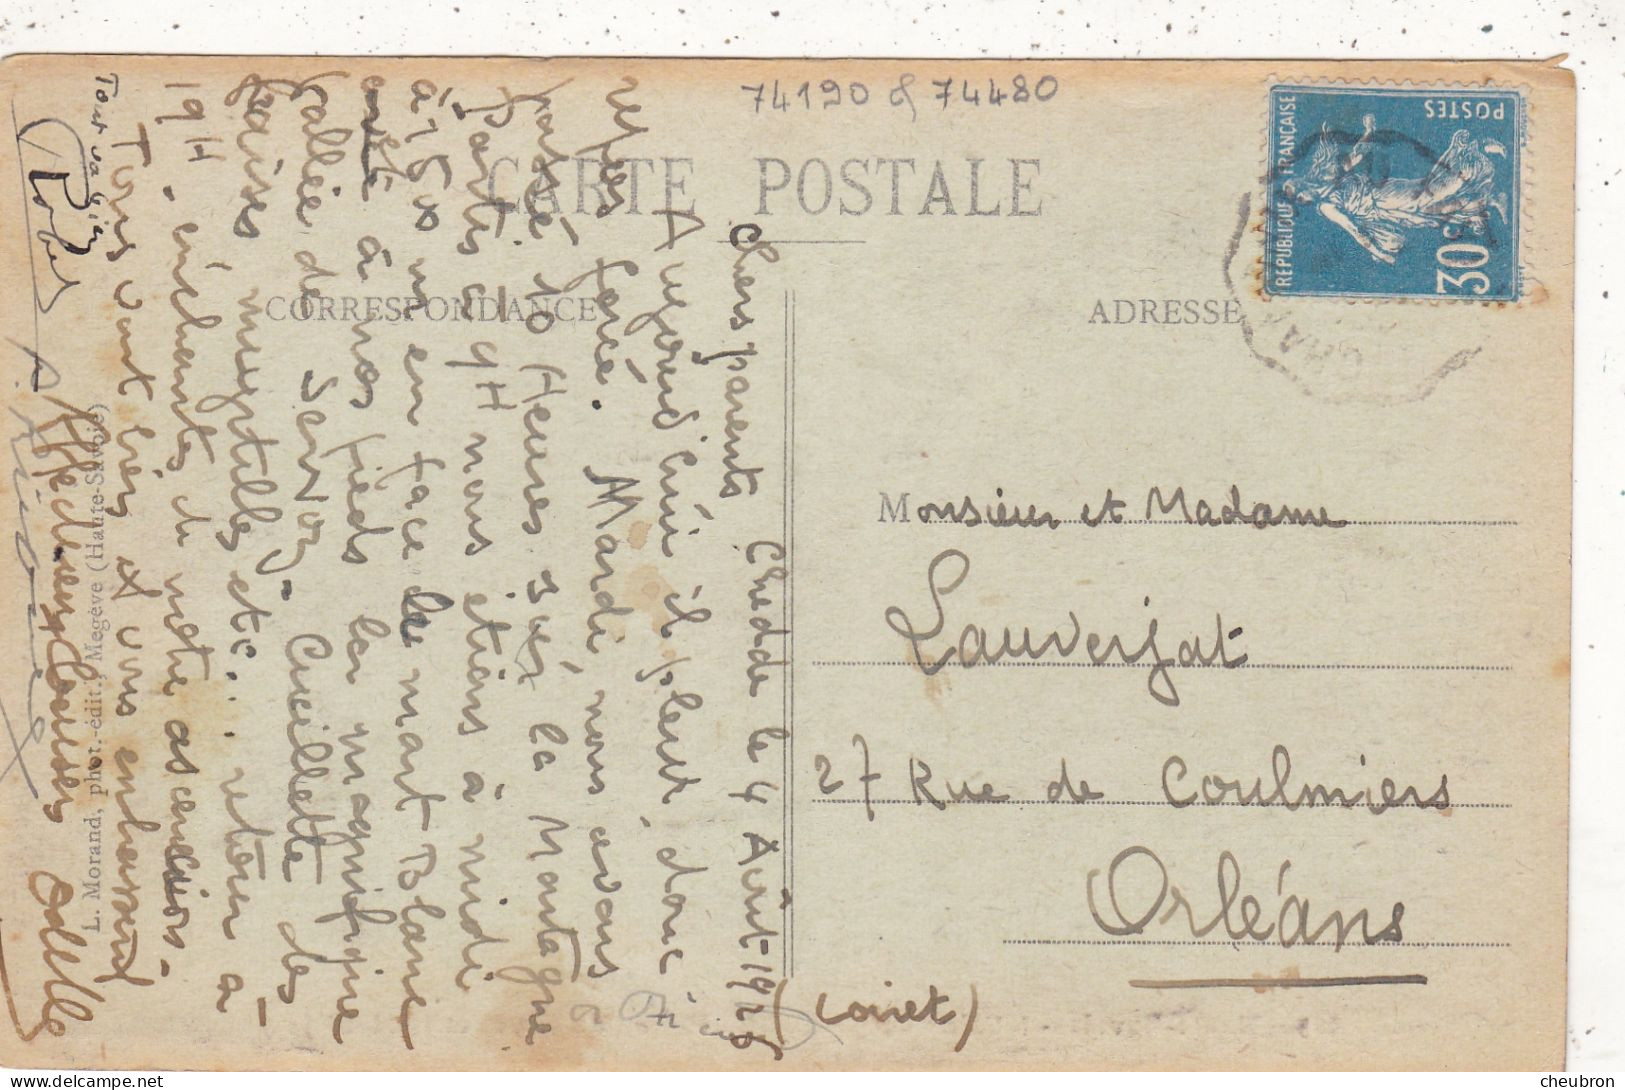 74190 & 74480
CARTE POSTALE
CORRESPONDANCE
ADRESSE
RÉPUBLIQUE FRANÇAISE
POSTES
30c
Chedde le 4 Août 1926
chers parents
Aujourd'hui il pleut, donc
repos forcé. Mardi, nous avons
passé 10 Heures sur la Montagne
Partis à 9H nous étions à midi
à 1500 m en face le mont Blanc
à nos pieds la magnifique
vallée de Servoz. Cueillette des
myrtilles etc... retour à
19H. enchantés de notre ascension.
Tous vont bien et vous embrassent
Affectueuses Caresses Odette
Tout va bien
Robert
L. Morand, phot.-édit., Megève (Haute-Savoie)
Monsieur et Madame
Lauverjat
27 Rue de Coulmiers
Orléans
(Loiret)
cheubron - delcampe.net